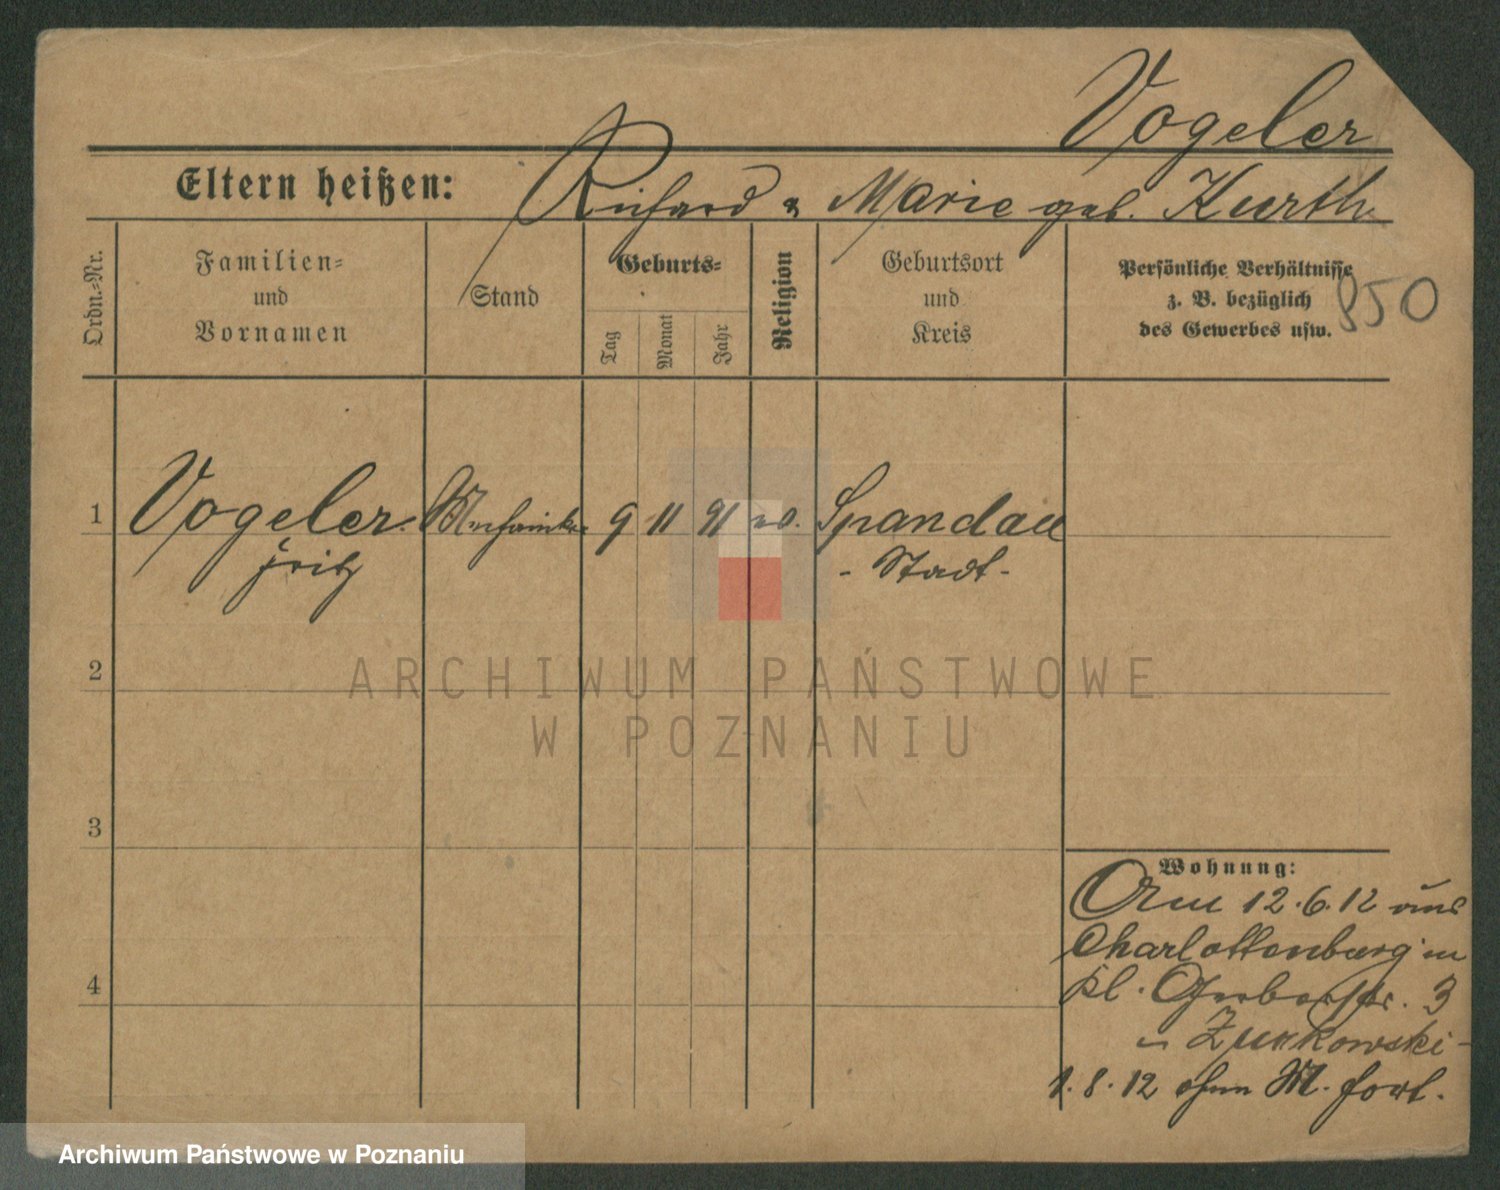 Vogeler
Eltern heißen: Richard & Marie geb. Kurth
Ordn.-Nr.
Familien-
und
Vornamen
Stand
Geburts-
Tag
Monat
Jahr
Religion
Geburtsort
und
Kreis
Persönliche Verhältnisse
z. B. bezüglich
des Gewerbes usw.
850
1 Vogeler Mechaniker 9 11 91 ev. Spandau
Fritz - Stadt -
2
3
4
ARCHIWUM PAŃSTWOWE
W POZNANIU
Wohnung:
Am 12.6.12 aus
Charlottenburg in
Kl. Gerberstr. 3
Zurkowski -
1.8.12 ohne M. fort.
Archiwum Państwowe w Poznaniu